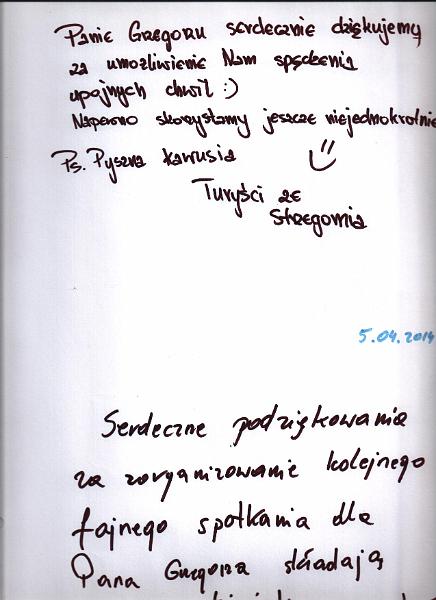 Panie Grzegorzu serdecznie dziękujemy
za umożliwienie Nam spędzenia
upojnych chwil :)
Napewno skorzystamy jeszcze niejednokrotnie
Ps. Pyszna kawusia
Turyści ze
Strzegomia
5.04.2014
Serdeczne podziękowania
za zorganizowanie kolejnego
fajnego spotkania dla
Pana Grzegorza składają